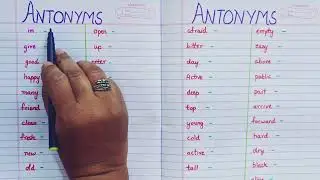 ANTONYMS
in - open -
give - up -
good - enter -
happy
many
friend
close
fresh -
new -
old -
ANTONYMS
afraid - empty -
bitter - easy -
day - above -
Active - public -
deep - past -
top - arrive -
young - forward -
cold - hard -
active - dry -
tall - black -